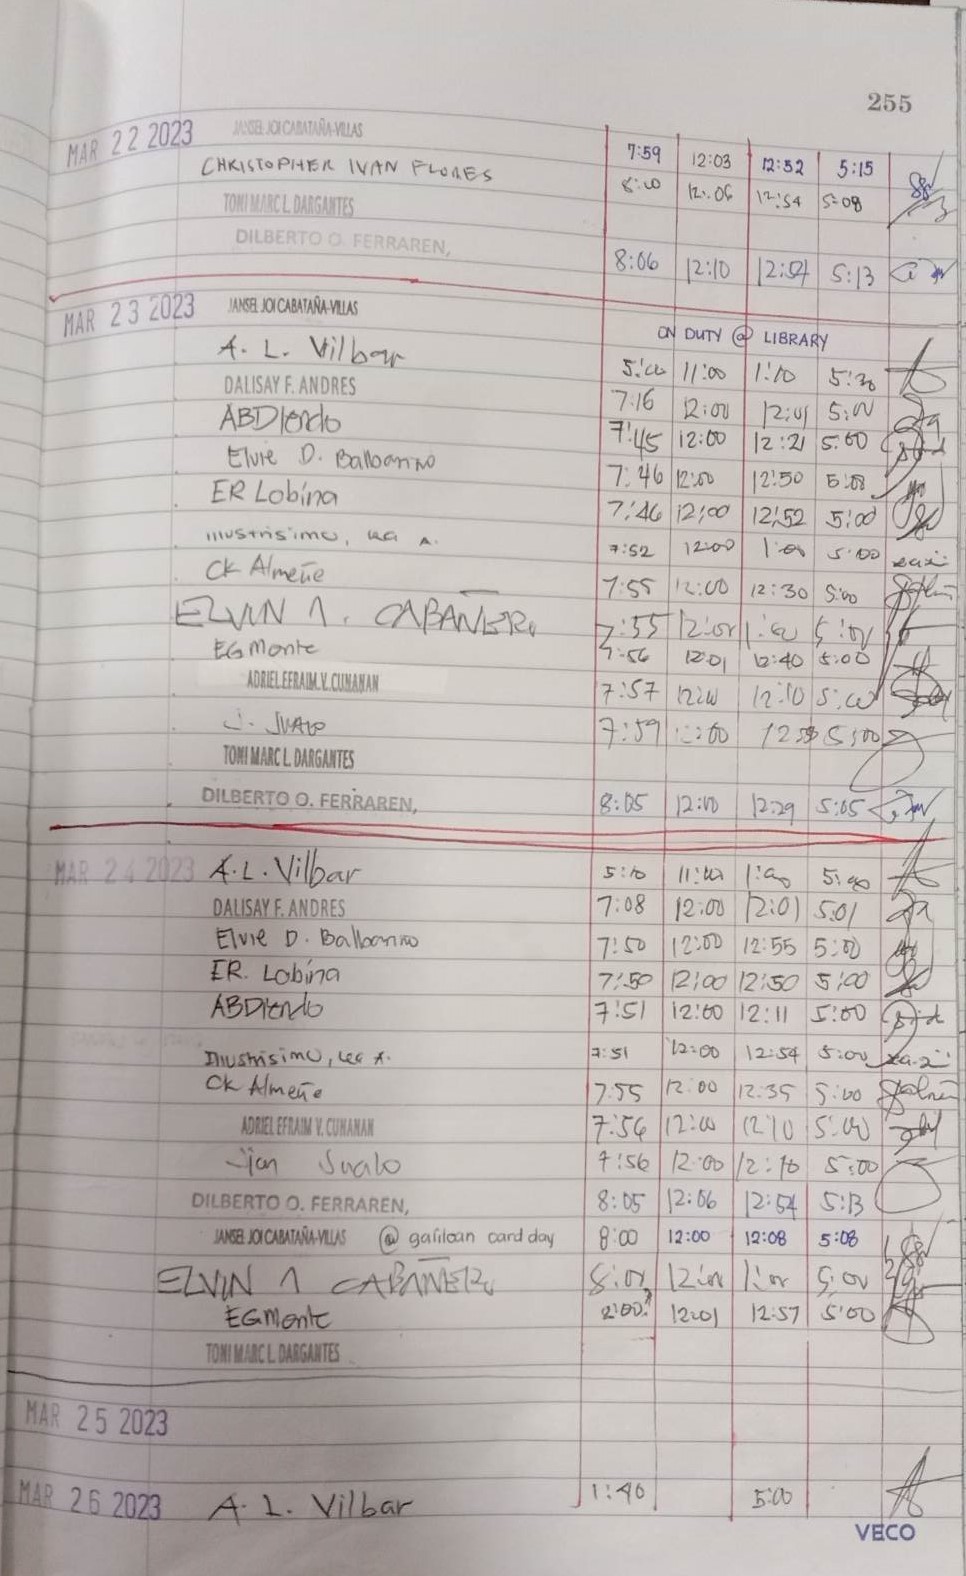 255
MAR 22 2023 JANSEL JOI CABATAÑA-VILLAS 7:59 12:03 12:52 5:15
CHRISTOPHER IVAN FLORES 8:00 12:06 12:54 5:08
TONI MARC L. DARGANTES
DILBERTO O. FERRAREN, 8:06 12:10 12:54 5:13
MAR 23 2023 JANSEL JOI CABATAÑA-VILLAS ON DUTY @ LIBRARY
A. L. Vilbar 5:00 11:00 1:10 5:30
DALISAY F. ANDRES 7:16 12:00 12:01 5:00
ABDIendo 7:45 12:00 12:21 5:00
Elvie D. Balbarino 7:46 12:00 12:50 5:00
ER Lobina 7:46 12:00 12:52 5:00
Illustrisimo, Lea A. 7:52 12:00 1:00 5:00
CK Almeñe 7:55 12:00 12:30 5:00
ELVIN 1. CABAÑERO 7:55 12:01 5:01
EGMonte 7:56 12:01 12:40 5:00
ADRIEL EFRAIM V. CUNANAN 7:57 12:00 12:10 5:00
J. SUALO 7:59 12:00 5:00
TONI MARC L. DARGANTES
DILBERTO O. FERRAREN, 8:05 12:10 12:29 5:05
MAR 24 2023 A.L. Vilbar 5:10 11:00 1:00 5:00
DALISAY F. ANDRES 7:08 12:00 12:01 5:01
Elvie D. Balbarino 7:50 12:00 12:55 5:00
ER. Lobina 7:50 12:00 12:50 5:00
ABDIendo 7:51 12:00 12:11 5:00
Illustrisimo, Lea A. 7:51 12:00 12:54 5:00
CK Almeñe 7:55 12:00 12:35 5:00
ADRIEL EFRAIM V. CUNANAN 7:56 12:00 12:10 5:00
Jian Sualo 7:56 12:00 12:10 5:00
DILBERTO O. FERRAREN, 8:05 12:06 12:54 5:13
JANSEL JOI CABATAÑA-VILLAS @ galilean card day 8:00 12:00 12:08 5:08
ELVIN 1 CABAÑERO 8:01 12:01 1:01 5:01
EGMonte 8:00 12:01 12:57 5:00
TONI MARC L. DARGANTES
MAR 25 2023
MAR 26 2023 A. L. Vilbar 1:40 5:00
VECO